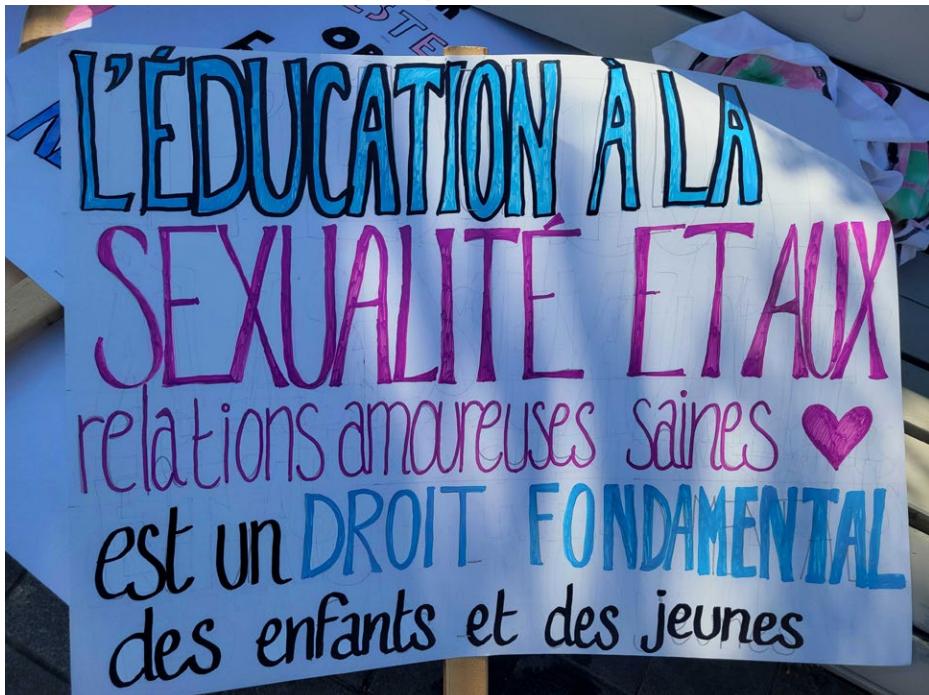 L'ÉDUCATION À LA
SEXUALITÉ ET AUX
relations amoureuses saines
est un DROIT FONDAMENTAL
des enfants et des jeunes